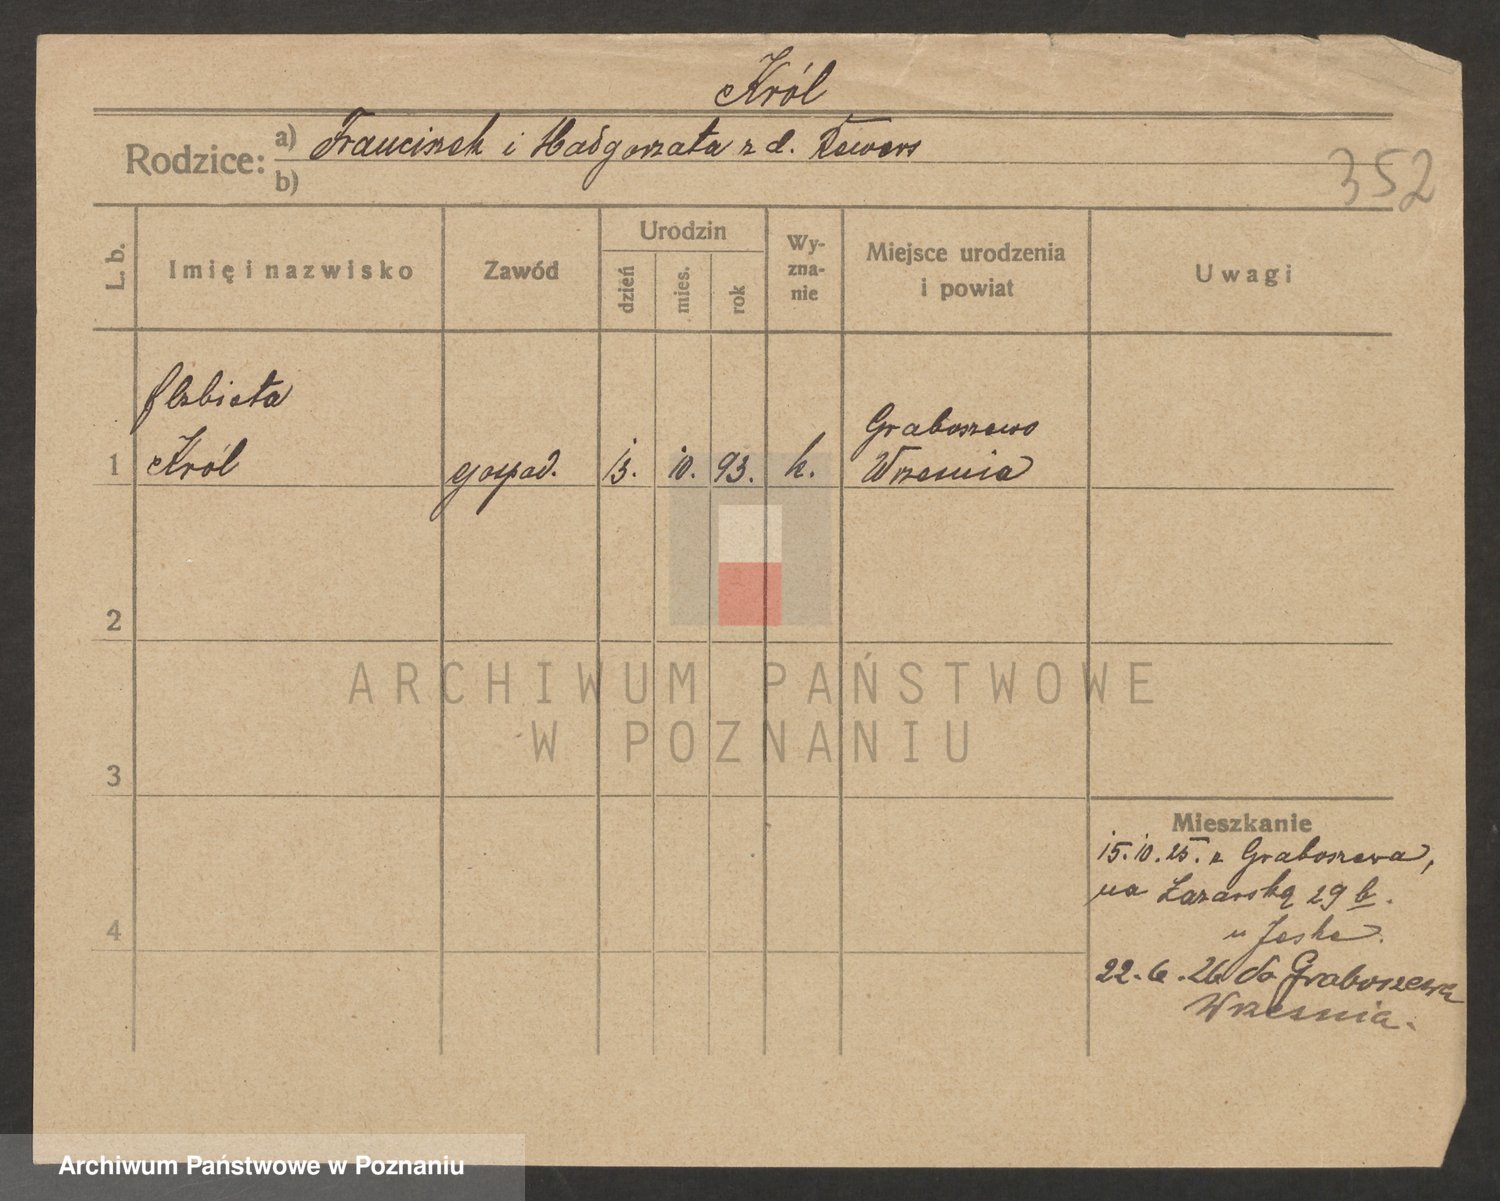 Król
Rodzice: a) Franciszek i Małgorzata z d.
b)
352
L. b.
Imię i nazwisko
Zawód
Urodzin
dzień
mies.
rok
Wy-
zna-
nie
Miejsce urodzenia
i powiat
Uwagi
Elzbieta
1 Król gospod. 13. 10. 93. k.
Graboszewo
Wrzesnia
2
3
4
ARCHIWUM PAŃSTWOWE
W POZNANIU
Mieszkanie
15.10.25. z Graboszewa,
na Łazarską 29 b.
u Jeske.
22.6.26 do Graboszewa
Wrzesnia.
Archiwum Państwowe w Poznaniu